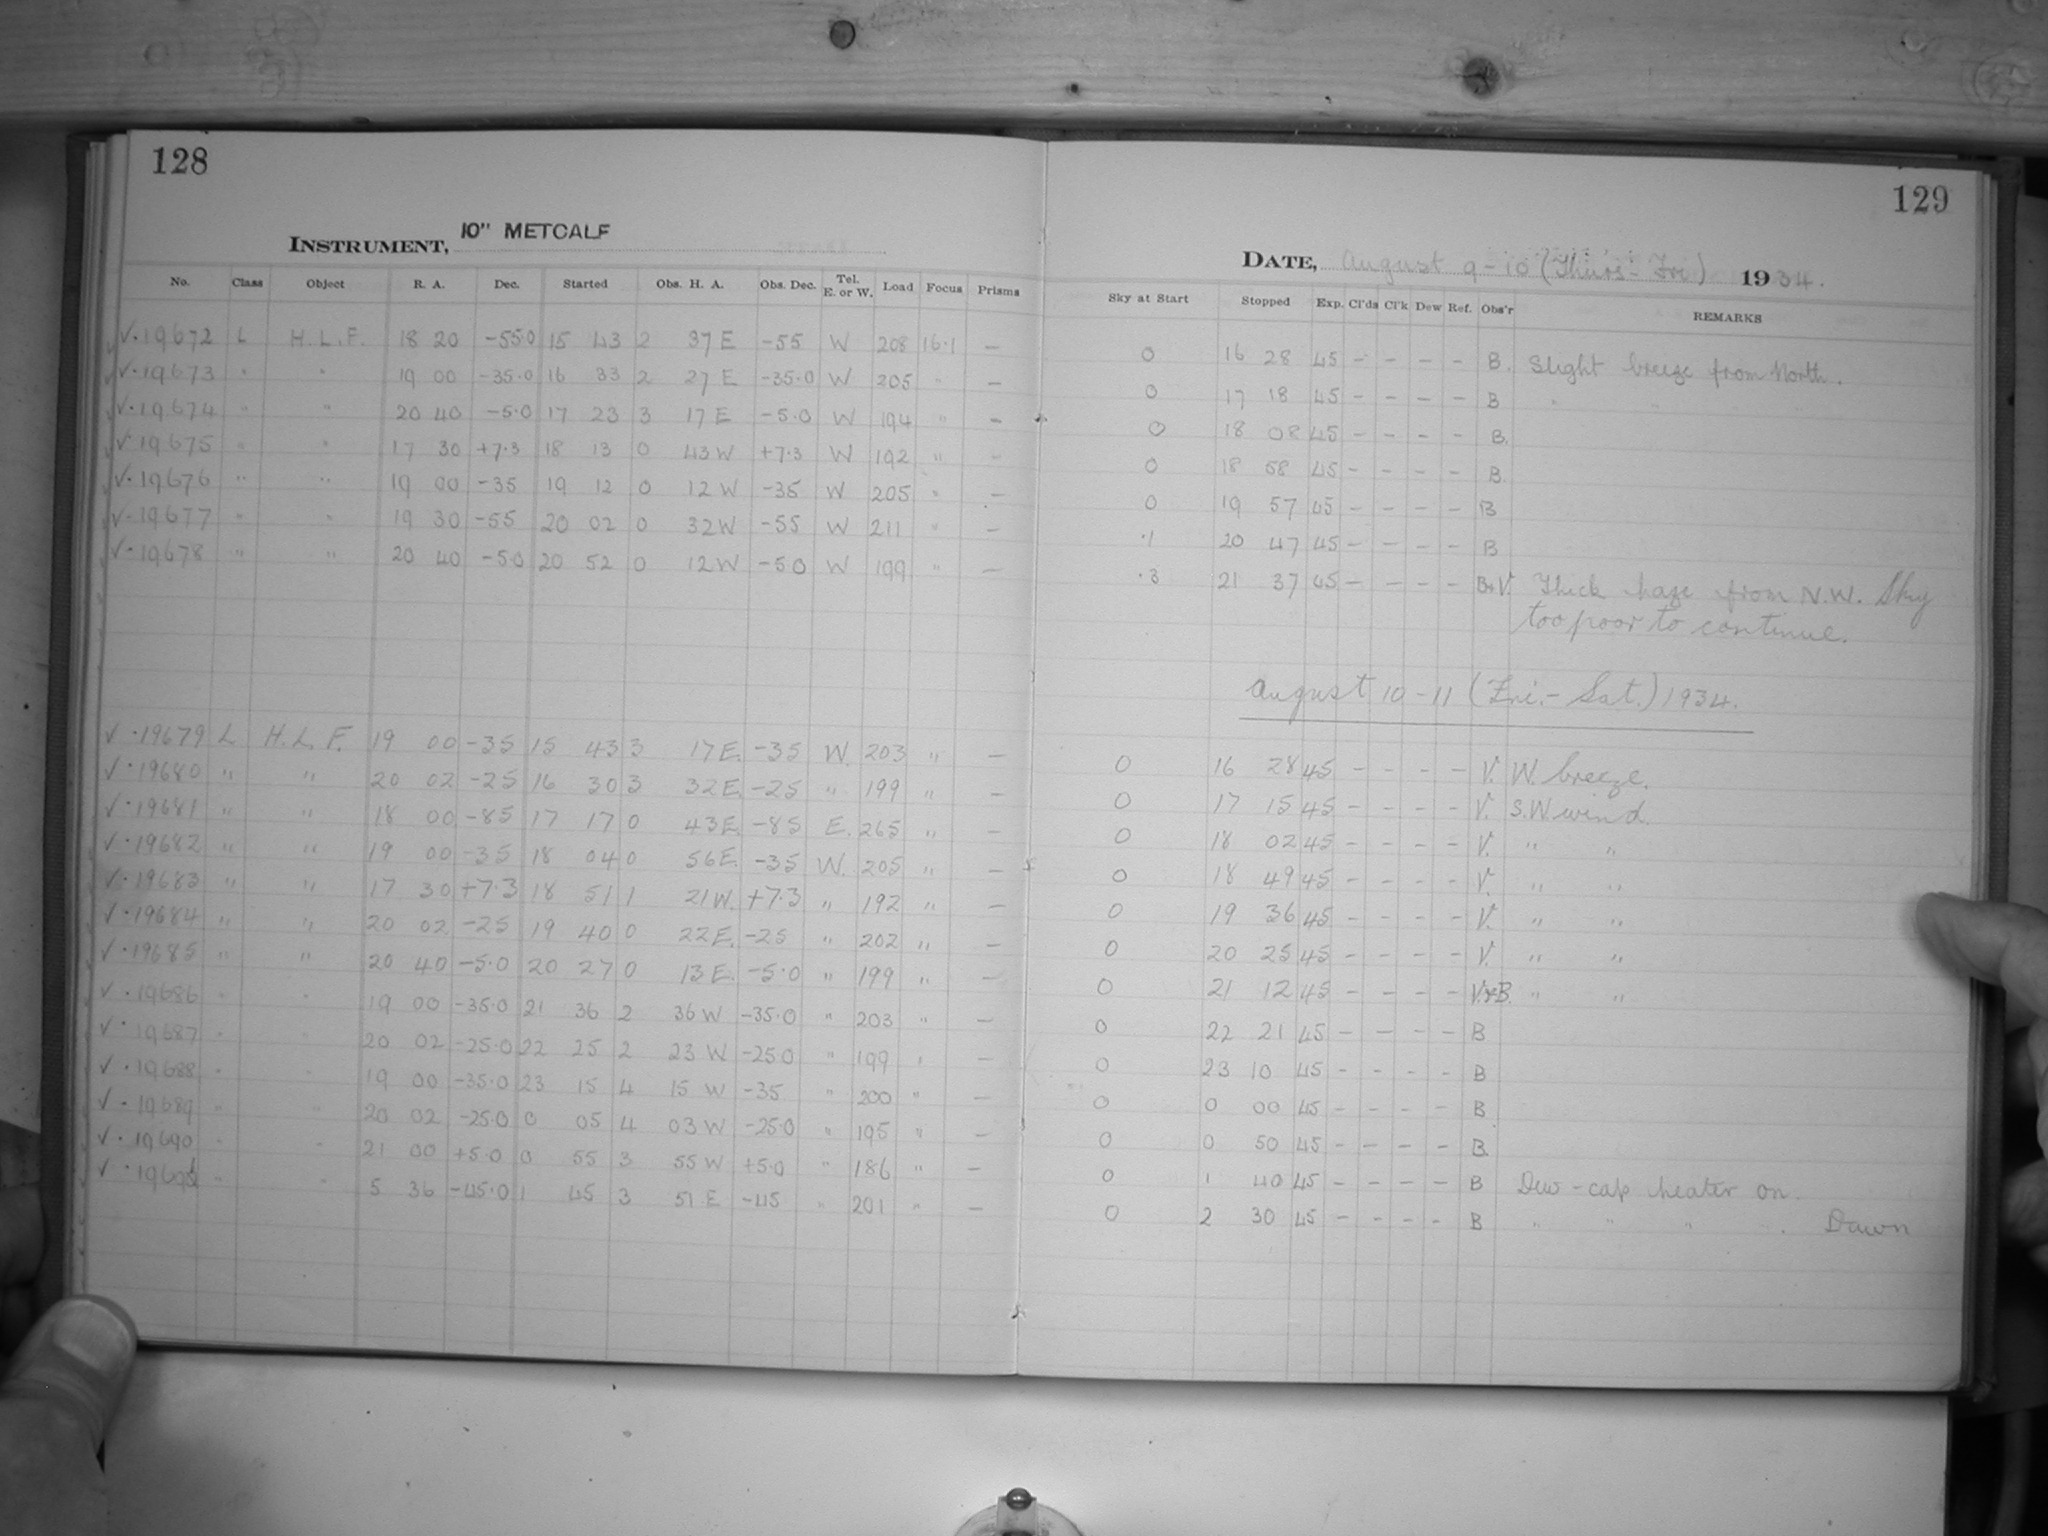 128
129
INSTRUMENT, 10" METCALF
DATE, August 9-10 (Thurs-Fri) 1934.
No. Class Object R. A. Dec. Started Obs. H. A. Obs. Dec. Tel. E. or W. Load Focus Prisms Sky at Start Stopped Exp. Cl'ds Cl'k Dew Ref. Obs'r REMARKS
√·19672 L H.L.F. 18 20 -55.0 15 43 2 37 E -55 W 208 16.1 — 0 16 28 45 - - - - B. Slight breeze from North.
√·19673 " " 19 00 -35.0 16 33 2 27 E -35.0 W 205 " — 0 17 18 45 - - - - B " " "
√·19674 " " 20 40 -5.0 17 23 3 17 E -5.0 W 194 " — 0 18 08 45 - - - - B.
√·19675 " " 17 30 +7.3 18 13 0 43 W +7.3 W 192 " — 0 18 58 45 - - - - B.
√·19676 " " 19 00 -35 19 12 0 12 W -35 W 205 " — 0 19 57 45 - - - - B
√·19677 " " 19 30 -55 20 02 0 32 W -55 W 211 " — .1 20 47 45 - - - - B
√·19678 " " 20 40 -5.0 20 52 0 12 W -5.0 W 199 " — .3 21 37 45 - - - - B+V. Thick haze from N.W. Sky
too poor to continue.
August 10-11 (Fri.-Sat.) 1934.
√·19679 L H.L.F. 19 00 -35 15 43 3 17 E. -35 W. 203 " — 0 16 28 45 - - - - V. W. breeze.
√·19680 " " 20 02 -25 16 30 3 32 E. -25 " 199 " — 0 17 15 45 - - - - V. S.W wind.
√·19681 " " 18 00 -85 17 17 0 43 E. -85 E. 265 " — 0 18 02 45 - - - - V. " "
√·19682 " " 19 00 -35 18 04 0 56 E. -35 W. 205 " — 0 18 49 45 - - - - V. " "
√·19683 " " 17 30 +7.3 18 51 1 21 W. +7.3 " 192 " — 0 19 36 45 - - - - V. " "
√·19684 " " 20 02 -25 19 40 0 22 E. -25 " 202 " — 0 20 25 45 - - - - V. " "
√·19685 " " 20 40 -5.0 20 27 0 13 E. -5.0 " 199 " — 0 21 12 45 - - - - V.+B. " "
√·19686 " " 19 00 -35.0 21 36 2 36 W -35.0 " 203 " — 0 22 21 45 - - - - B
√·19687 " " 20 02 -25.0 22 25 2 23 W -25.0 " 199 " — 0 23 10 45 - - - - B
√·19688 " " 19 00 -35.0 23 15 4 15 W -35 " 200 " — 0 0 00 45 - - - - B
√·19689 " " 20 02 -25.0 0 05 4 03 W -25.0 " 195 " — 0 0 50 45 - - - - B.
√·19690 " " 21 00 +5.0 0 55 3 55 W +5.0 " 186 " — 0 1 40 45 - - - - B Dew-cap heater on.
√·19691 " " 5 36 -45.0 1 45 3 51 E -45 " 201 " — 0 2 30 45 - - - - B " " " . Dawn